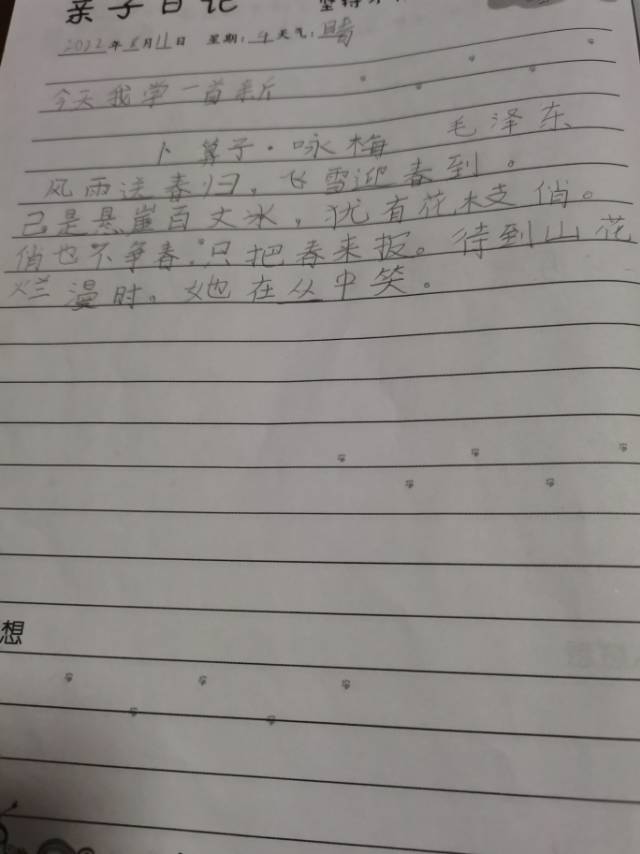 亲子日记
2022年8月11日 星期:4天气:晴
今天我学一首新
卜算子·咏梅 毛泽东
风雨送春归，飞雪迎春到。
己是悬崖百丈冰，犹有花枝俏。
俏也不争春。只把春来报。待到山花
烂漫时。她在丛中笑。
想